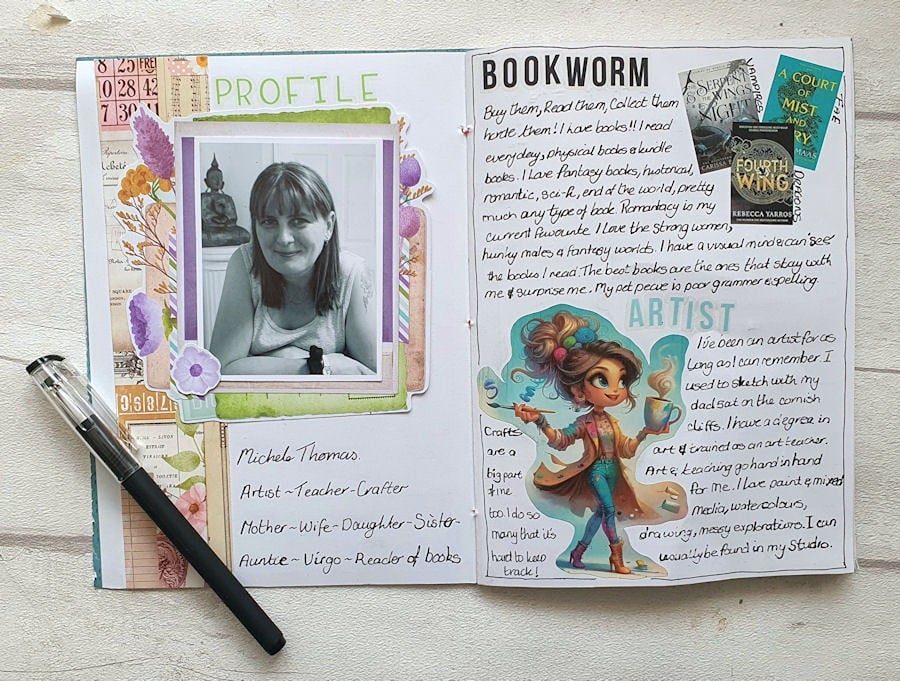 8 25 FRE
10 32
31 40
PROFILE
Michele Thomas.
Artist ~ Teacher ~ Crafter
Mother ~ Wife ~ Daughter ~ Sister ~
Auntie ~ Virgo ~ Reader of books
BOOKWORM
Buy them, Read them, Collect them
horde them! I Love books!! I read
everyday, physical books & kindle
books. I Love fantasy books, historical,
romantic, sci-fi, end of the world, pretty
much any type of book. Romantacy is my
current favourite. I Love the strong women,
hunky males & fantasy worlds. I have a visual mind & can 'see'
the books I read. The best books are the ones that stay with
me & surprise me. My pet peave is poor grammer & spelling.
VAMPIRES
SERPENT
THE WINGS
NIGHT
CARISSA
FAE
A COURT
OF
MIST
AND
RY
MAAS
DRAGONS
FOURTH
WING
REBECCA YARROS
ARTIST
I've been an artist for as
Long as I can remember. I
used to sketch with my
dad sat on the cornish
cliffs. I have a degree in
art & trained as an art teacher.
Art & teaching go hard in hand
for me. I love paint & mixed
media, watercolours,
drawing, messy explorations. I can
usually be found in my Studio.
Crafts
are a
big part
of me
too. I do so
many that it's
hard to keep
track!